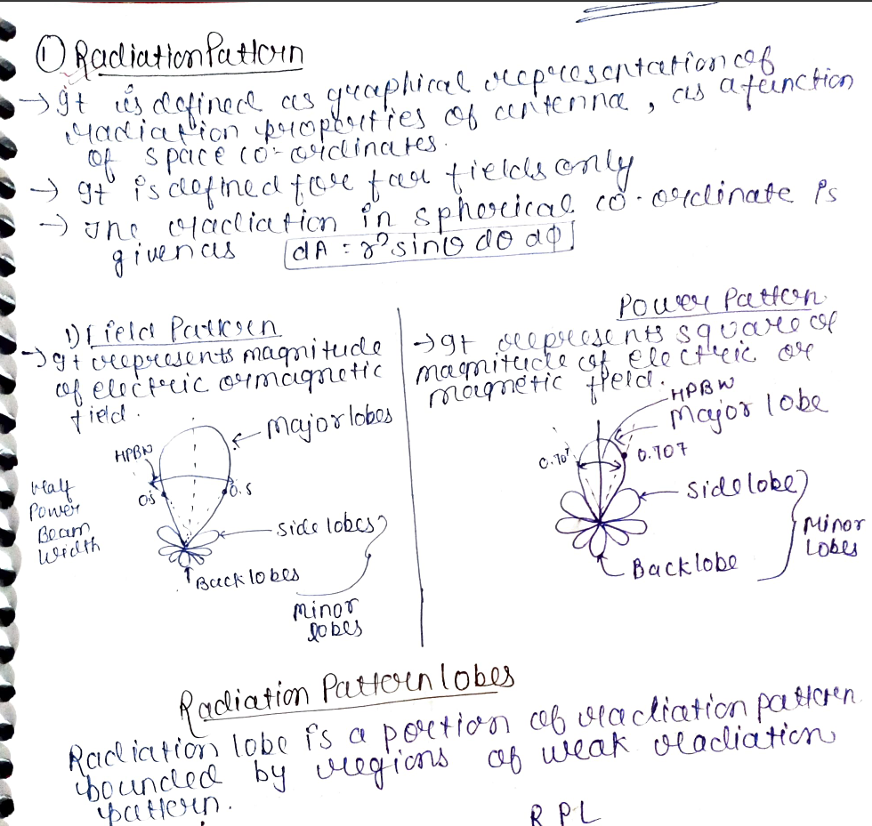 ① Radiation Pattern
→ It is defined as graphical representation of
radiation properties of antenna, as a function
of space co-ordinates.
→ It is defined for far fields only
→ The radiation in spherical co-ordinate is
given as dA = r² sinθ dθ dφ
1) Field Pattern
→ It represents magnitude
of electric or magnetic
field.
HPBW
Major lobes
Half
Power
Beam
Width
0.5
0.5
Side lobes
Back lobes
Minor
lobes
Power Pattern
→ It represents square of
magnitude of electric or
magnetic field.
HPBW
Major lobe
0.707
0.707
Side lobe
Minor
Lobes
Back lobe
Radiation Pattern lobes
Radiation lobe is a portion of radiation pattern
bounded by regions of weak radiation
pattern.
R P L